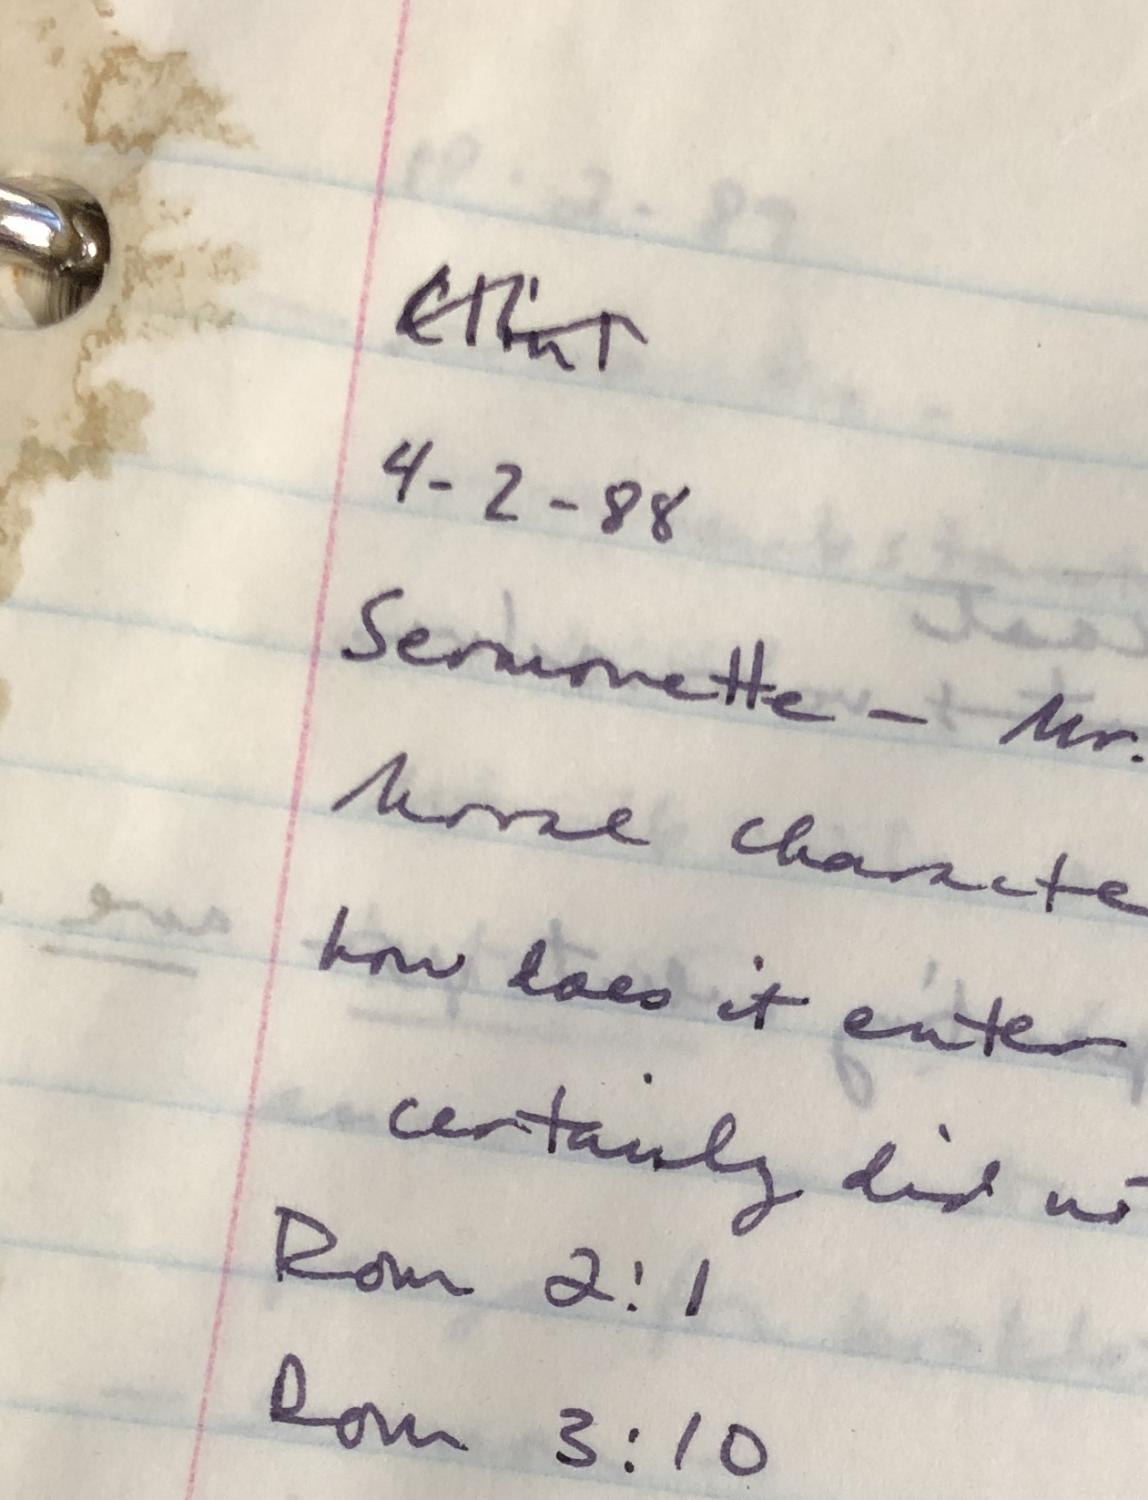 4-2-88
Sermonette - Mr.
Moral characte
how does it enter
certainly did not
Rom 2:1
Rom 3:10